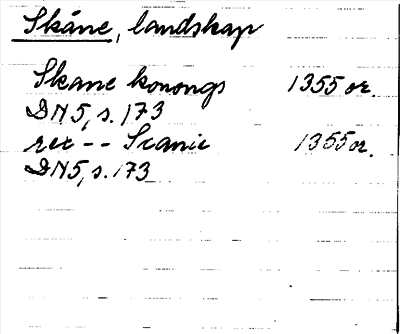 Skåne, landskap
Skane konongs 1355 or.
DN5, s. 173
rex -- Scanie 1355 or.
DN5, s. 173